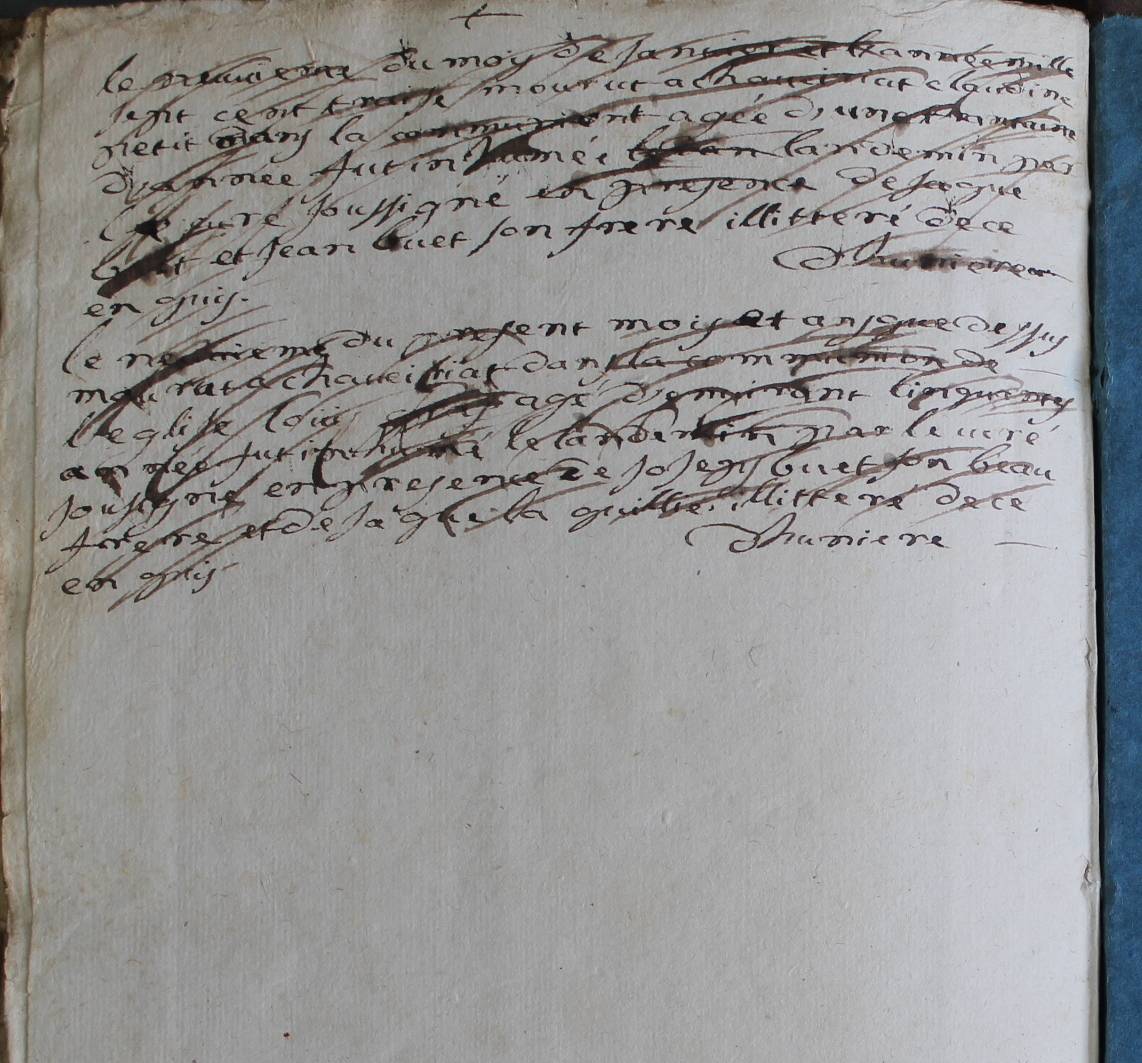 le du moy de Janvier et l'année mille
sept cent traise mourut a claudine
petit dans la agée d'une
d'année fut inhumée landemin par
le curé soussigné en presence de Jaque
buet et Jean buet son frere illitteré de ce
en quis. Dhuniere
le du present mois et an que dessus
mourut a dans la communion de
l'eglise lois agé d'emiront cinquantes
année fut inhumé le landemin par le curé
soussigné en presence de Joseph buet son beau
frere et de Jaque la illitteré de ce
en quis Dhuniere